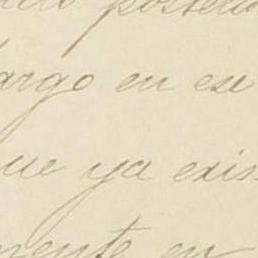 poster
argo en ese
que ya exis
mente en